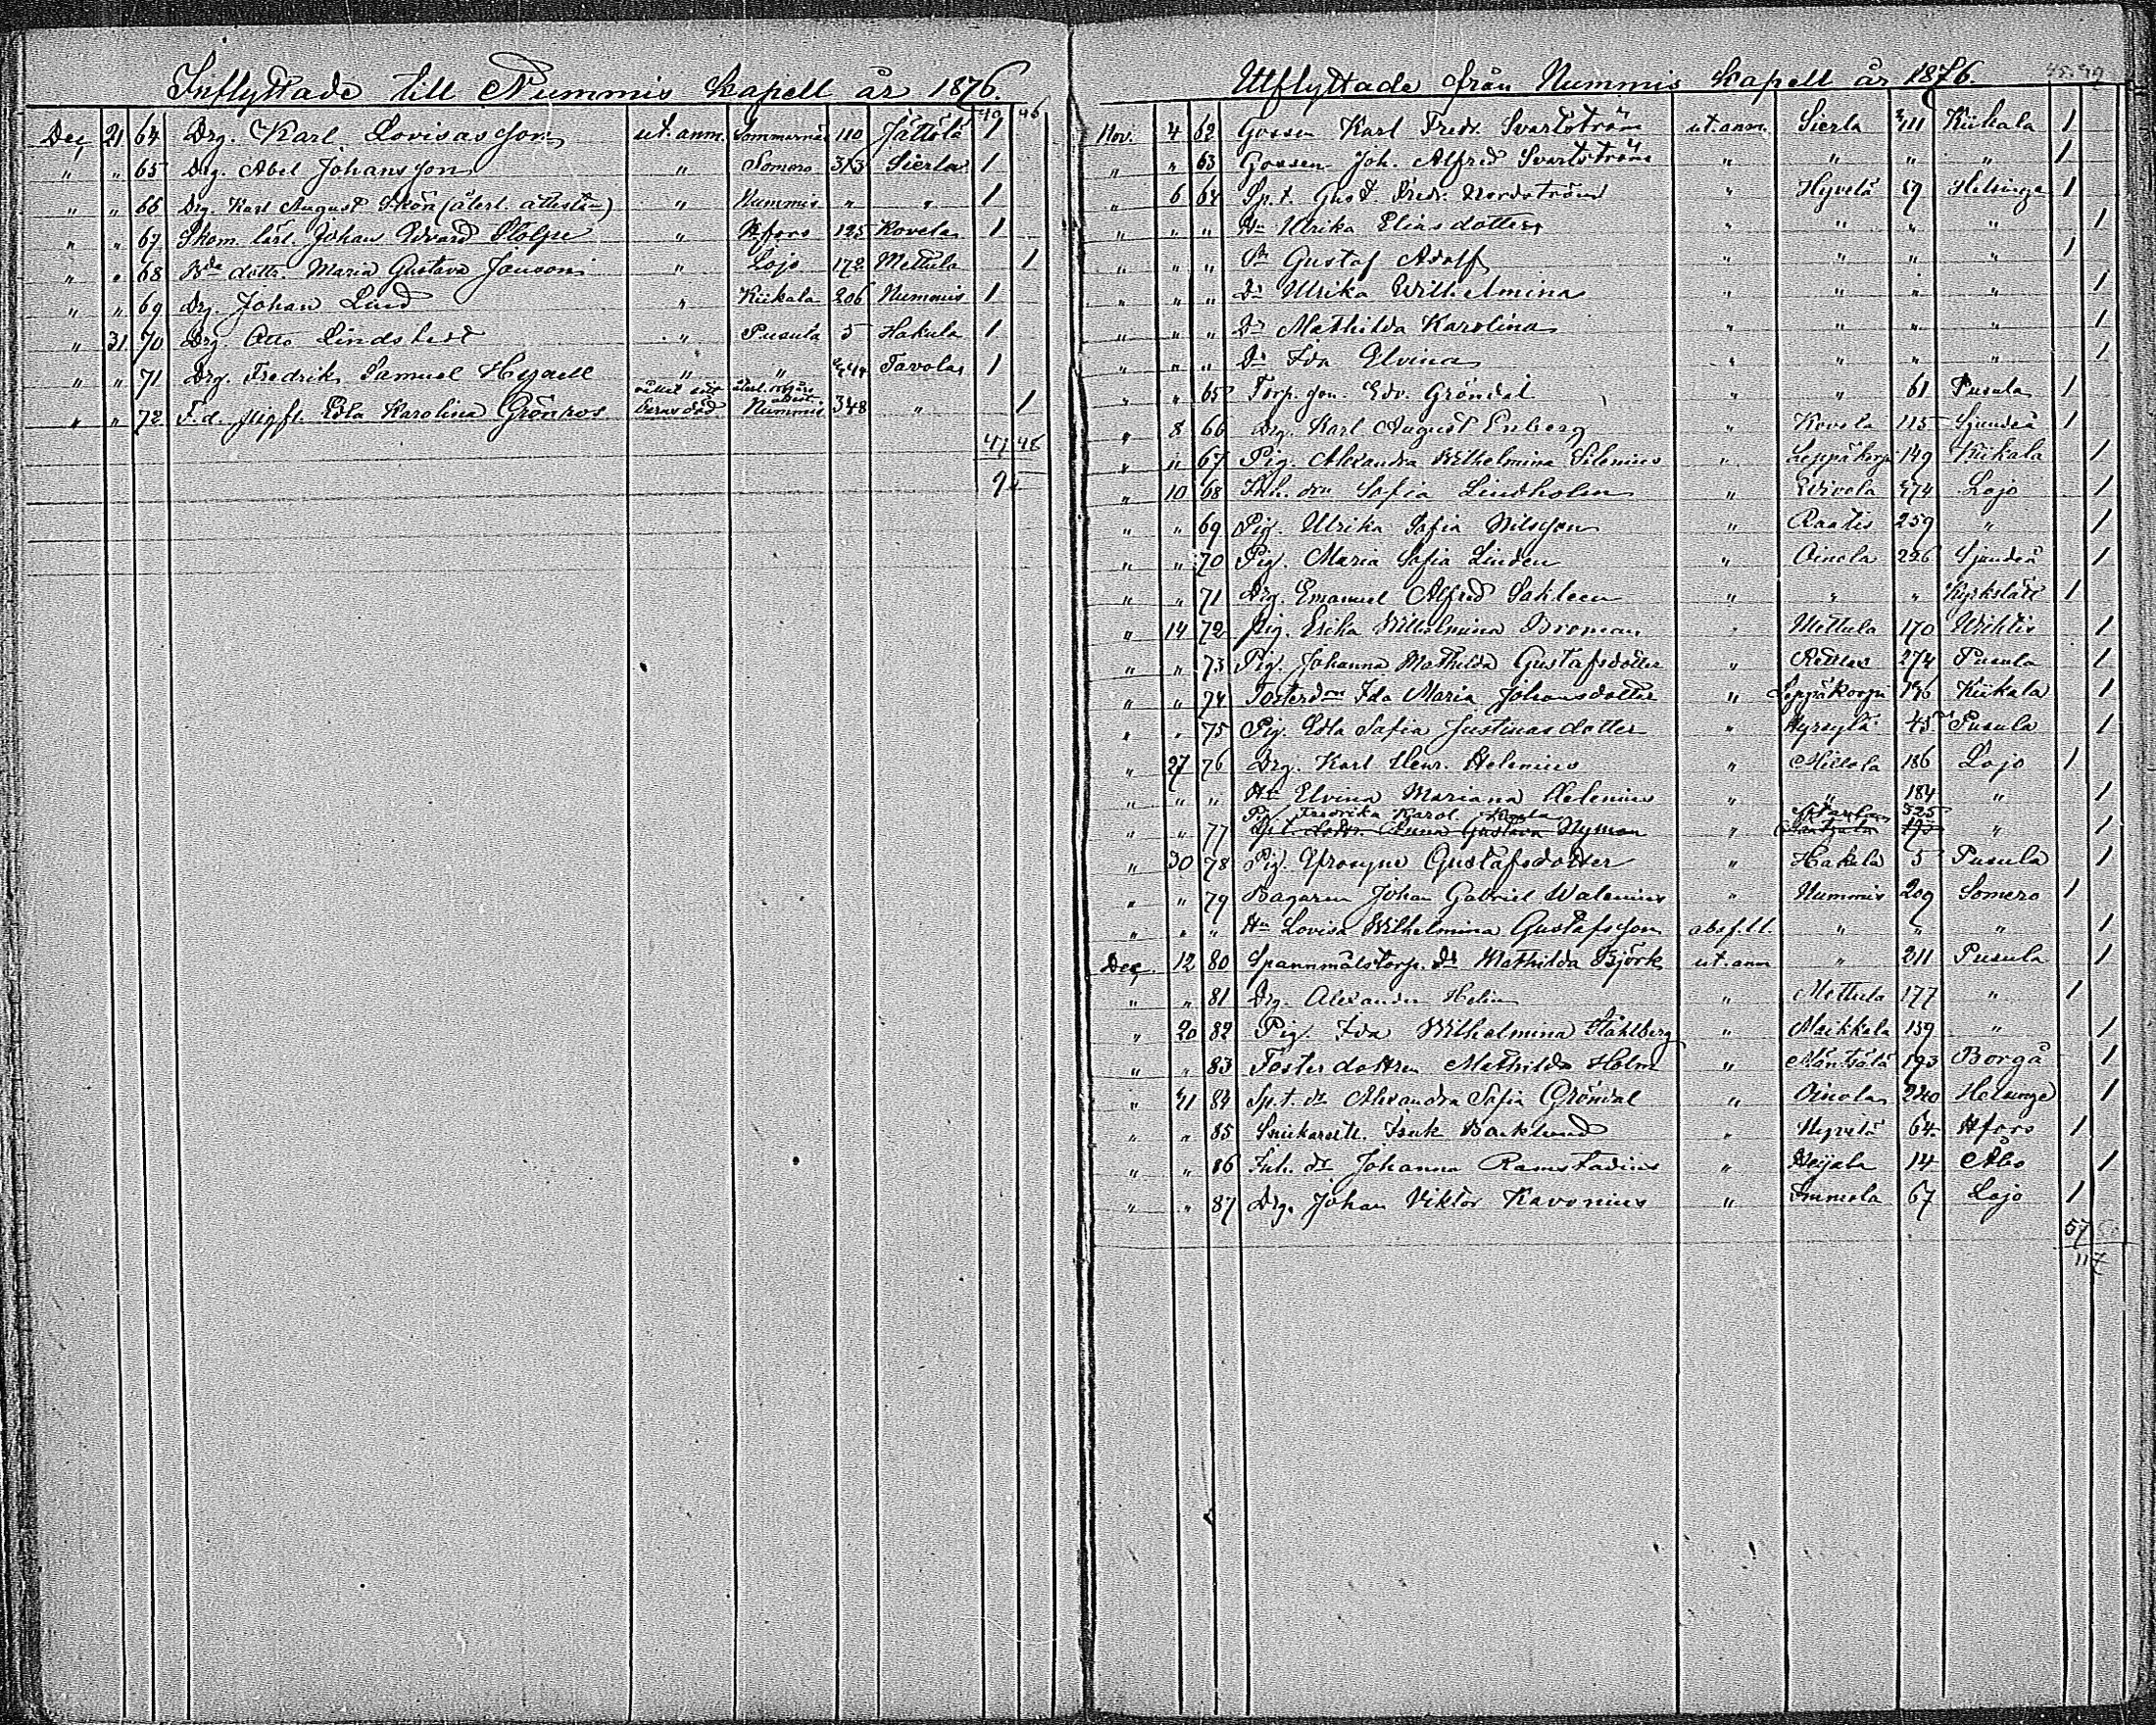 Inflyttade till Nummis kapell år 1876.
49 46
Dec. 21 64 Drg. Karl Lovisasson ut. anm. Sommarnäs 110 Jättölä 1
" " 65 Drg. Abel Johansson " Somero 313 Sierla 1
" " 66 Drg. Karl August Skön (återl. attest) " Nummis " " 1
" " 67 Skom. lärl. Johan Edvard Stolpe " Hfors 125 Kovela 1
" " 68 Bde dottr. Maria Gustava Janson " Lojo 172 Mettula 1
" " 69 Drg. Johan Lind " Kiikala 206 Nummis 1
" 31 70 Drg. Otto Lindstedt " Pusula 5 Hakula 1
" " 71 Drg. Fredrik Samuel Hyrell " " Tavola 1
" " 72 F. d. Edla Karolina Grönroos Nummis 348 " 1
47 48
95
Utflyttade från Nummis kapell år 1876.
Nov. 4 62 Gossen Karl Fredr. Svartström ut. anm. Sierla Kiikala 1
" " 63 Gossen Joh. Alfred Svartström " " " " 1
" 6 64 Sp.t. Gust. Fredr. Nordström " Hyvelä 59 Helsinge 1
" " " Hu Ulrika Eliasdotter " " " " 1
" " " Sn Gustaf Adolf " " " " 1
" " " Dr Ulrika Wilhelmina " " " " 1
" " " Dr Mathilda Karolina " " " " 1
" " " Dr Ida Elvina " " " " 1
" " 65 Torp. son. Edv. Gröndal " " 61 Pusula 1
" 8 66 Drg. Karl August Enberg " Kovela 115 Sjundeå 1
" " 67 Pig. Alexandra Wilhelmina Silenius " Leppäkorpi 149 Kiikala 1
" 10 68 Inh. drn Sofia Lindholm " 274 Lojo 1
" " 69 Pig. Ulrika Sofia Nilsson " Raatis 259 " 1
" " 70 Pig. Maria Sofia Linden " Oinola 226 Sjundeå 1
" " 71 Drg. Emanuel Alfred Sahleen " " " Kyrkslätt 1
" 14 72 Pig. Erika Wilhelmina Broman " Mettula 170 Wihtis 1
" " 73 Pig. Johanna Mathilda Gustafsdotter " Retlas 274 Pusula 1
" " 74 Fosterdrn Ida Maria Johansdotter " Leppäkorpi 146 Kiikala 1
" " 75 Pig. Edla Sofia Justinasdotter " Hyrsylä 45 Pusula 1
" 27 76 Drg. Karl Henr. Helenius " Millola 186 Lojo 1
" " " Hu Elvina Mariana Helenius " " 184 " 1
Pig. Fredrika Karol. 325
" " 77 Anna Gustava Nyman " " 1
" 30 78 Pig. Efrosyne Gustafsdotter " Hakula 5 Pusula 1
" " 79 Bagaren Johan Gabriel Walenius " Nummis 209 Somero 1
" " " Hu Lovisa Wilhelmina Gustafsson " " " 1
Dec. 12 80 Spannmålstorp. dr Mathilda Björk ut. anm " 211 Pusula 1
" " 81 Drg. Alexander Helin " Mettula 177 " 1
" 20 82 Pig. Ida Wilhelmina Ståhlberg " Maikkala 159 " 1
" " 83 Fosterdottren Mathilda Holm " Mäntsälä 193 Borgå 1
" 21 84 Sp.t. dr Alexandra Sofia Gröndal " Oinola 240 Helsinge 1
" " 85 Snickare Isak Backlund " Hyvelä 64 Hfors 1
" " 86 Inh. dr Johanna Ramstadius " Heijala 14 Åbo 1
" " 87 Drg. Johan Viktor Kavonius " Immola 67 Lojo 1
57
117